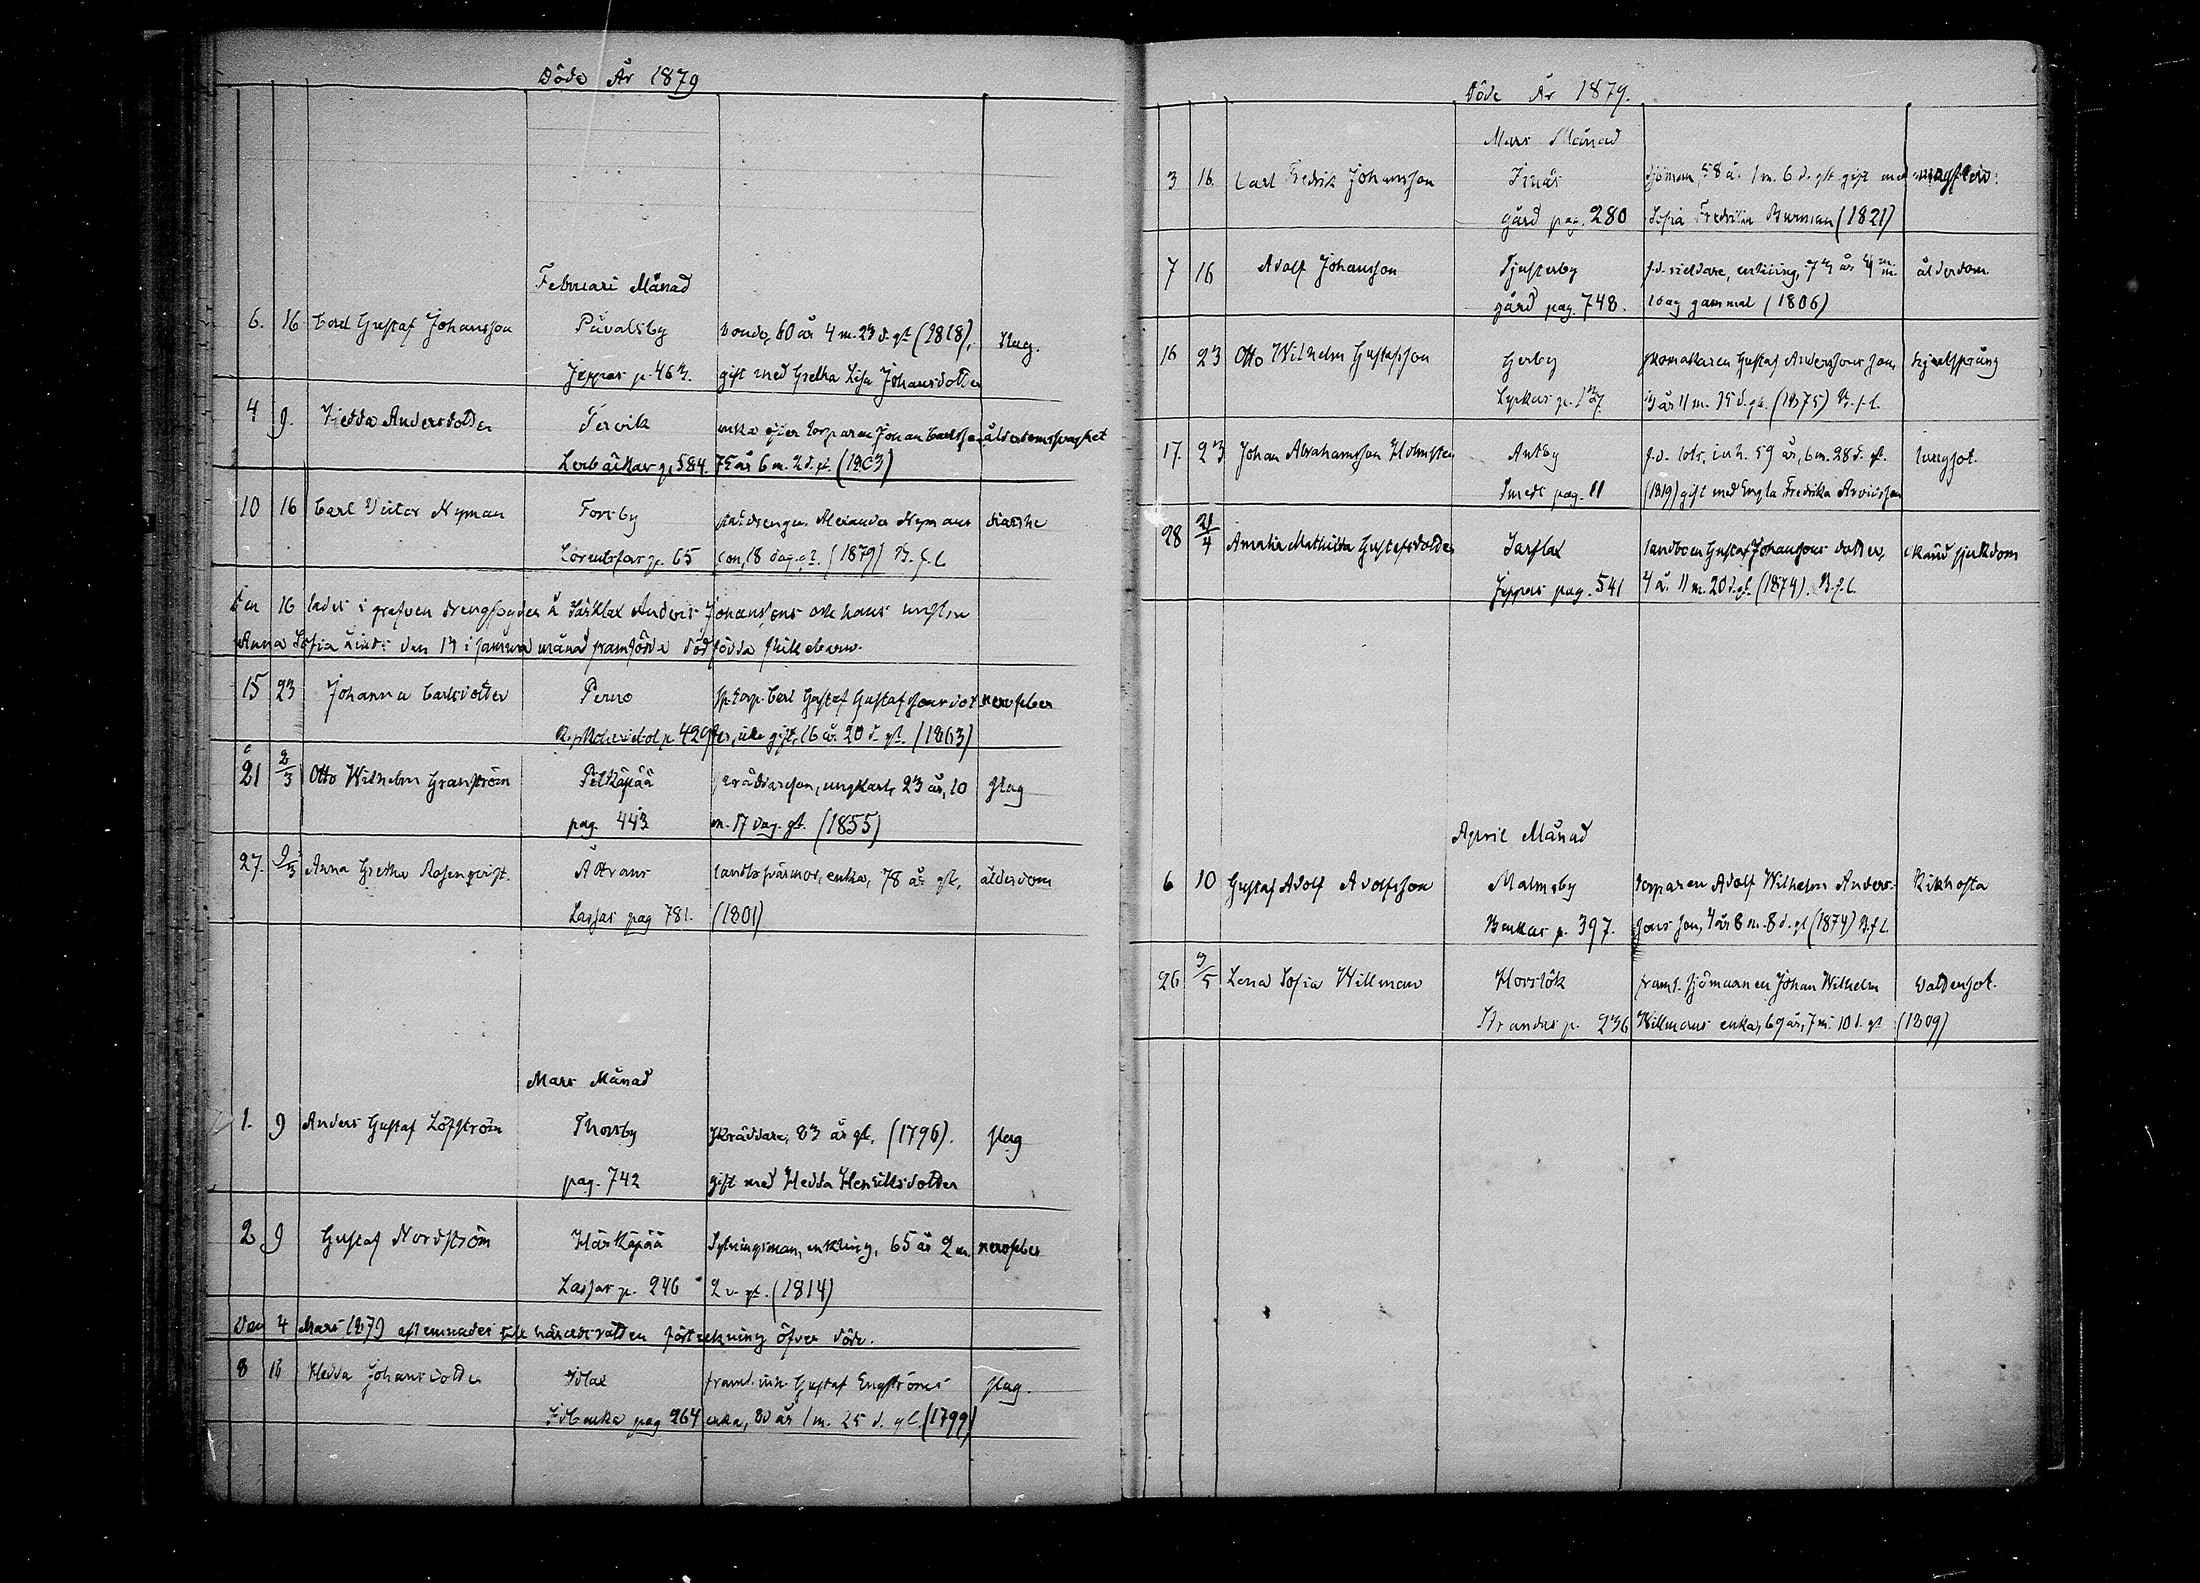 Döde År 1879
Februari Månad
6. 16 Carl Gustaf Johansson Påvalsby bonde, 60 år 4 m. 23 d. gl. (1818), slag.
Jeppas p. 463. gift med Gretha Lisa Johansdotter
4 9. Hedda Andersdotter Tervik enka efter torparen Johan Carlsson ålderdomssvaghet
Lerbäckar p. 584. 75 år 6 m. 2 d. gl. (1803)
10 16 Carl Victor Nyman Forsby statdrengen Alexander Nymans diarrhe
Lorentsfars p. 65 son, 18 dag. gl. (1879) B. f. l.
den 16 lades i grafven drengsonden å Särklax Anders Johanssons och hans
Anna Sofia den 14 i samma månad framfödda dödfödda flickebarn.
15 23 Johanna Carlsdotter Perno sp. torp. Carl Gustaf Gustafssons dot nervfeber
p. 429 ter, icke gift, 16 år 20 d. gl. (1863)
21 2/3 Otto Wilhelm Granström Pitkäpää skräddareson, ungkarl, 23 år, 10 slag
pag. 443 m. 17 dag. gl. (1855)
27. 9/3 Anna Gretha Rosenqvist. Åttrans landbosvärmor, enka, 78 år gl., ålderdom
Lassas pag 781. (1801)
Mars Månad
1. 9 Anders Gustaf Löfström Thorsby Skräddare, 83 år gl. (1796). slag
pag. 742 gift med Hedda Henriksdotter
2 9 Gustaf Nordström Härkäpää Sytningsman, enkling, 65 år 2 m. nervfeber
Lassas p. 246 2 d. gl. (1814)
Den 4 Mars 1879 aflemnades till häradsrätten förteckning öfver döde.
8 16 Hedda Johansdotter Idlax framl. inh. Gustaf Engströms slag.
pag 264 enka, 80 år 1 m. 25 d. gl. (1799)
Döde År 1879.
Mars Månad
3 16. Carl Fredrik Johansson Isnäs Sjöman, 58 år 1 m. 6 d. gl. gift med
gård pag. 280 Sofia Fredrika Burman (1821)
7 16 Adolf Johansson Tjusterby f.d. rättare, enkling, 74 år m. ålderdom
gård pag. 748. 10 dag gammal (1806)
16 23 Otto Wilhelm Gustafsson Gerby skomakaren Gustaf Anderssons son
Lyckas p. 127. 3 år 11 m. 15 d. gl. (1875) B. f. l.
17. 23 Johan Abrahamsson Holmsten Antby f.d. lots, inh. 59 år, 6 m. 28 d. gl. lungsot.
Smeds pag. 11 (1819) gift med Engla Fredrika Arvidsson
28 21/4 Amalia Mathilda Gustafsdotter Sarflax landboen Gustaf Johanssons dotter, okänd sjukdom
Jeppas pag. 541 4 år 11 m. 20 d. gl. (1874). B. f. l.
April Månad
6 10 Gustaf Adolf Adolfsson Malmsby torparen Adolf Wilhelm Anders- Kikhosta
Benkas p. 397. sons son, 4 år 8 m. 8 d. gl (1874) B. f. l.
26 3/5 Lena Sofia Willman Horslök framl. sjömannen Johan Wilhelm Vattensot.
Strandas p. 236 Willmans enka, 69 år, 7 m. 10 d. gl (1809)